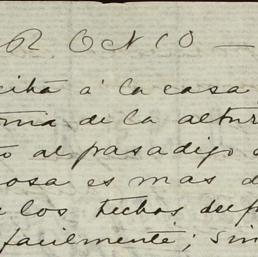 R O N I O —
á la casa
de la altur
al pasadijo
osa es mas d
los techos del
facilmente; sin